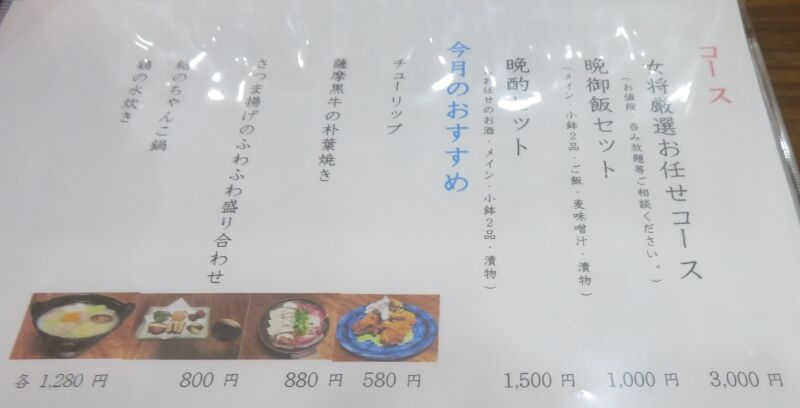 コース
女将厳選お任せコース
(お値段・呑み放題等ご相談ください。)
3,000 円
晩御飯セット
(メイン・小鉢2品・ご飯・麦味噌汁・漬物)
1,000 円
晩酌セット
お任せのお酒・メイン・小鉢2品・漬物)
1,500 円
今月のおすすめ
チューリップ
580 円
薩摩黒牛の朴葉焼き
880 円
さつま揚げのふわふわ盛り合わせ
800 円
のちゃんこ鍋
鶏の水炊き
各 1,280 円